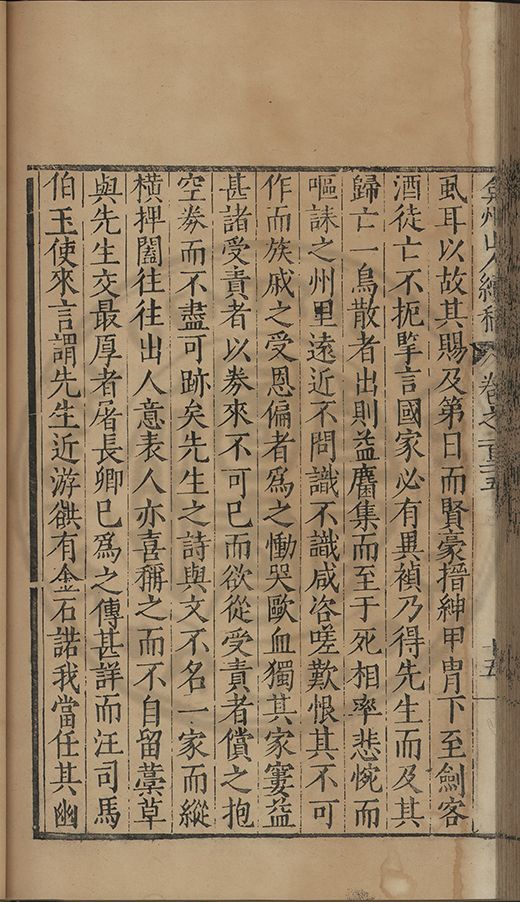 弇州山人續稿 卷之一百三五 十五
虱耳以故其賜及第日而賢豪搢紳甲冑下至劍客
酒徒亡不扼掔言國家必有異禎乃得先生而及其
歸亡一鳥散者出則益麕集而至于死相率悲惋而
嘔誄之州里遠近不問識不識咸咨嗟歎恨其不可
作而族戚之受恩偏者爲之慟哭歐血獨其家寠益
甚諸受責者以券來不可已而欲從受責者償之抱
空券而不盡可跡矣先生之詩與文不名一家而縱
橫押闔往往出人意表人亦喜稱之而不自留藁草
與先生交最厚者屠長卿已爲之傳甚詳而汪司馬
伯玉使來言謂先生近游歙有金石諾我當任其幽